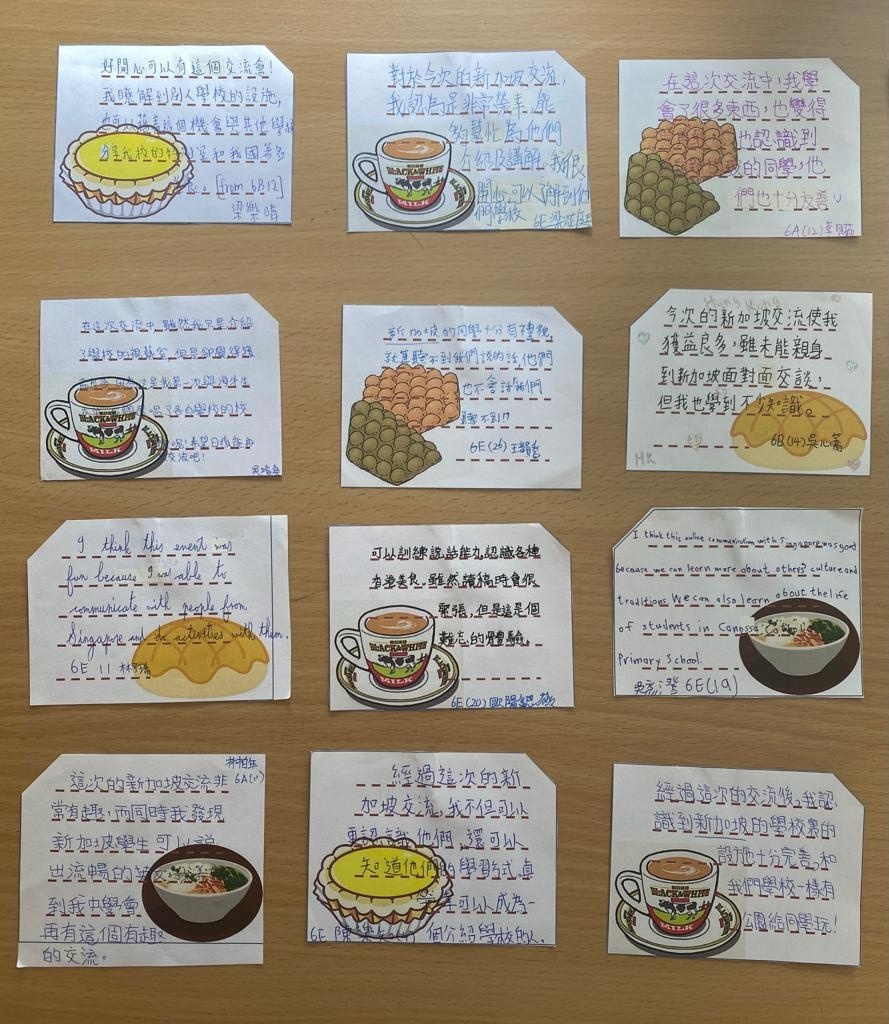 好開心可以有這個交流會！
我瞭解到別人學校的設施，
也可以藉着這個機會與其他學校
分享我校的特 室和我國著多
[from 6B12]
梁樂晴
對於今次的新加坡交流，
我認為是非常榮幸，能
夠幫忙為他們
介紹及講解。我很
開心可以了解到他
們學校
6E 梁
在這次交流中，我學
會了很多東西，也變得
也認識到
的同學，他
們也十分友善
6A(12)李
在這次交流中，雖然我只是介紹
了學校的視藝室，但是卻覺得獲
益良多，因為這是我第一次與海外生
交流
呢！希望日後能再
交流吧！
BLACK&WHITE
MILK
新加坡的同學十分有禮貌，
就算聽不到我們說的話，他們
也不會話我們
聽不到！
6E(26)王
Hong Kong
今次的新加坡交流使我
獲益良多，雖未能親身
到新加坡面對面交談，
但我也學到不少知識。
6B(14)吳心
HK
I think this event was
fun because I was able to
communicate with people from
Singapore and do activities with them.
6E 11 林
可以訓練說話能力，認識各種
香港美食。雖然讀稿時會很
緊張，但是這是個
難忘的體驗。
6E(20)歐陽
BLACK&WHITE
MILK
I think this online communication with Singapore was good
because we can learn more about others' culture and
traditions. We can also learn about the life
of students in Canossa
Primary School.
6E(19)
林柏
6A(11)
這次的新加坡交流非
常有趣，而同時我發現
新加坡學生可以說
出流暢的英文
到我中學會
再有這個有趣
的交流。
經過這次的新
加坡交流，我不但可以
更認識他們，還可以
知道他們的學習式，真
可以成為一
6E 陳樂 個介紹學校的人。
經過這次的交流後，我認
識到新加坡的學校裏的
設施十分完善，和
我們學校一樣有
公園給同學玩！
BLACK&WHITE
MILK